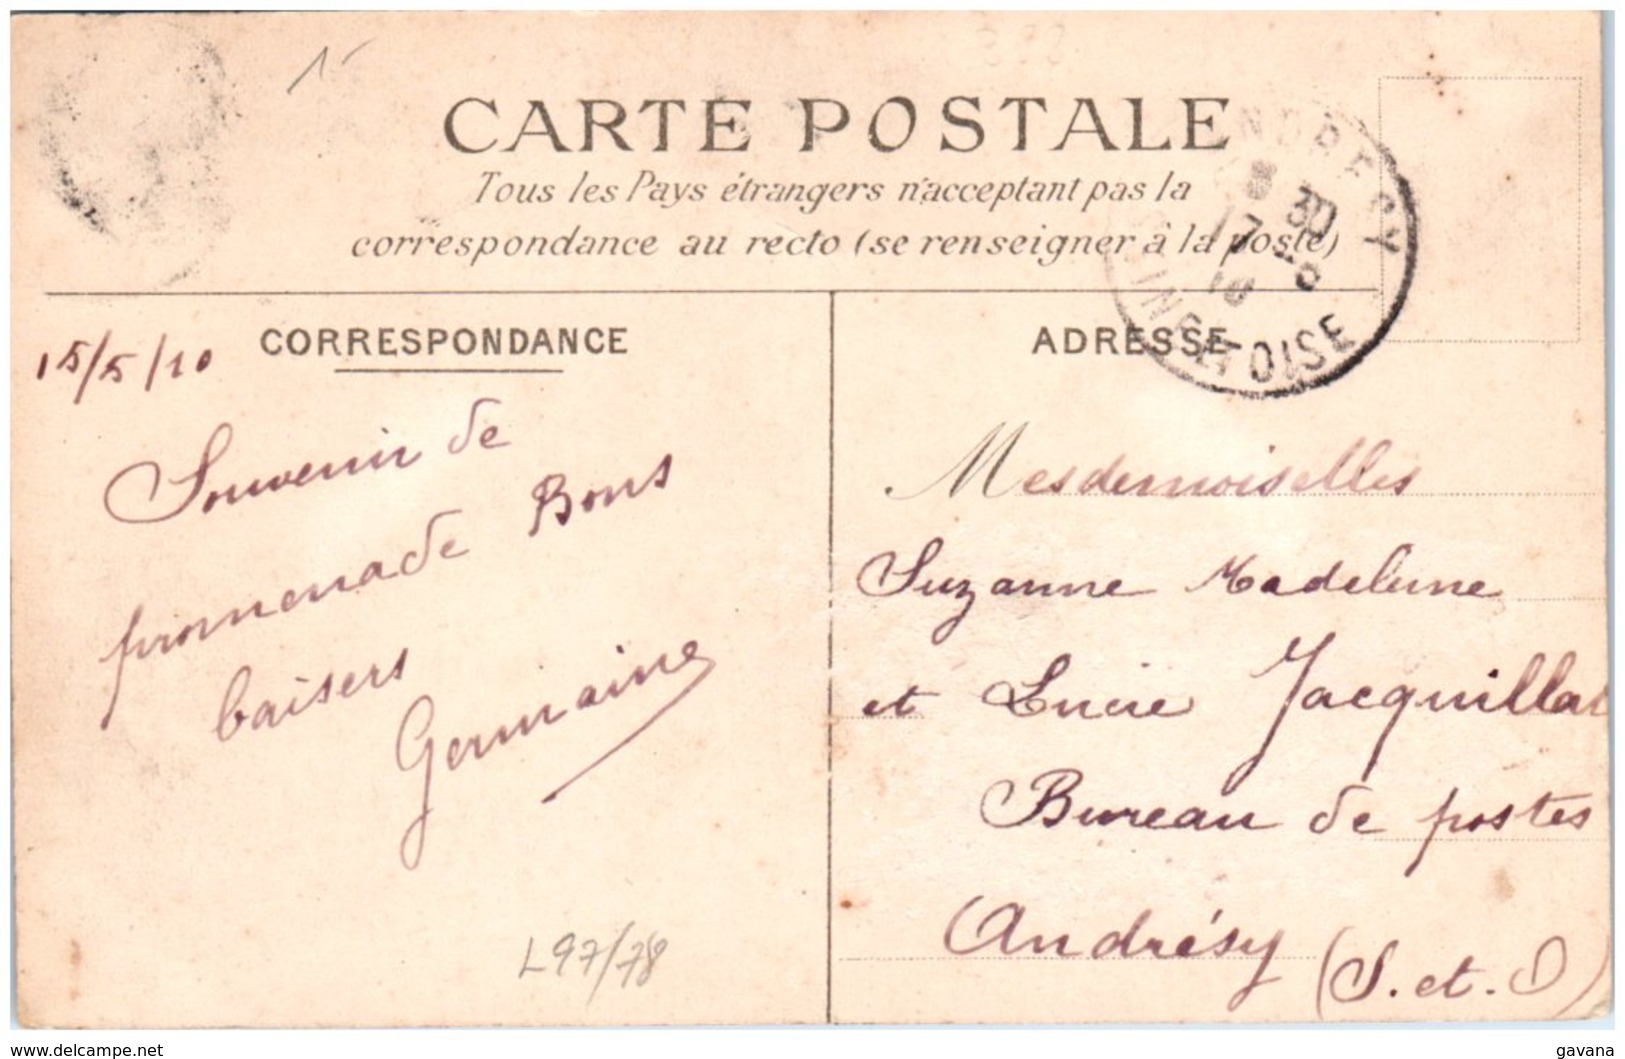 1-
CARTE POSTALE
Tous les Pays étrangers n'acceptant pas la
correspondance au recto (se renseigner à la poste)
8 30
17 -5
10
OISE
15/5/10
CORRESPONDANCE
Souvenir de
promenade Bons
baisers
Germaine
L97/78
ADRESSE
Mesdemoiselles
Suzanne Madeleine
et Lucie Jacquillat
Bureau de postes
Andrésy (S. et. O)
www.delcampe.net
gavana